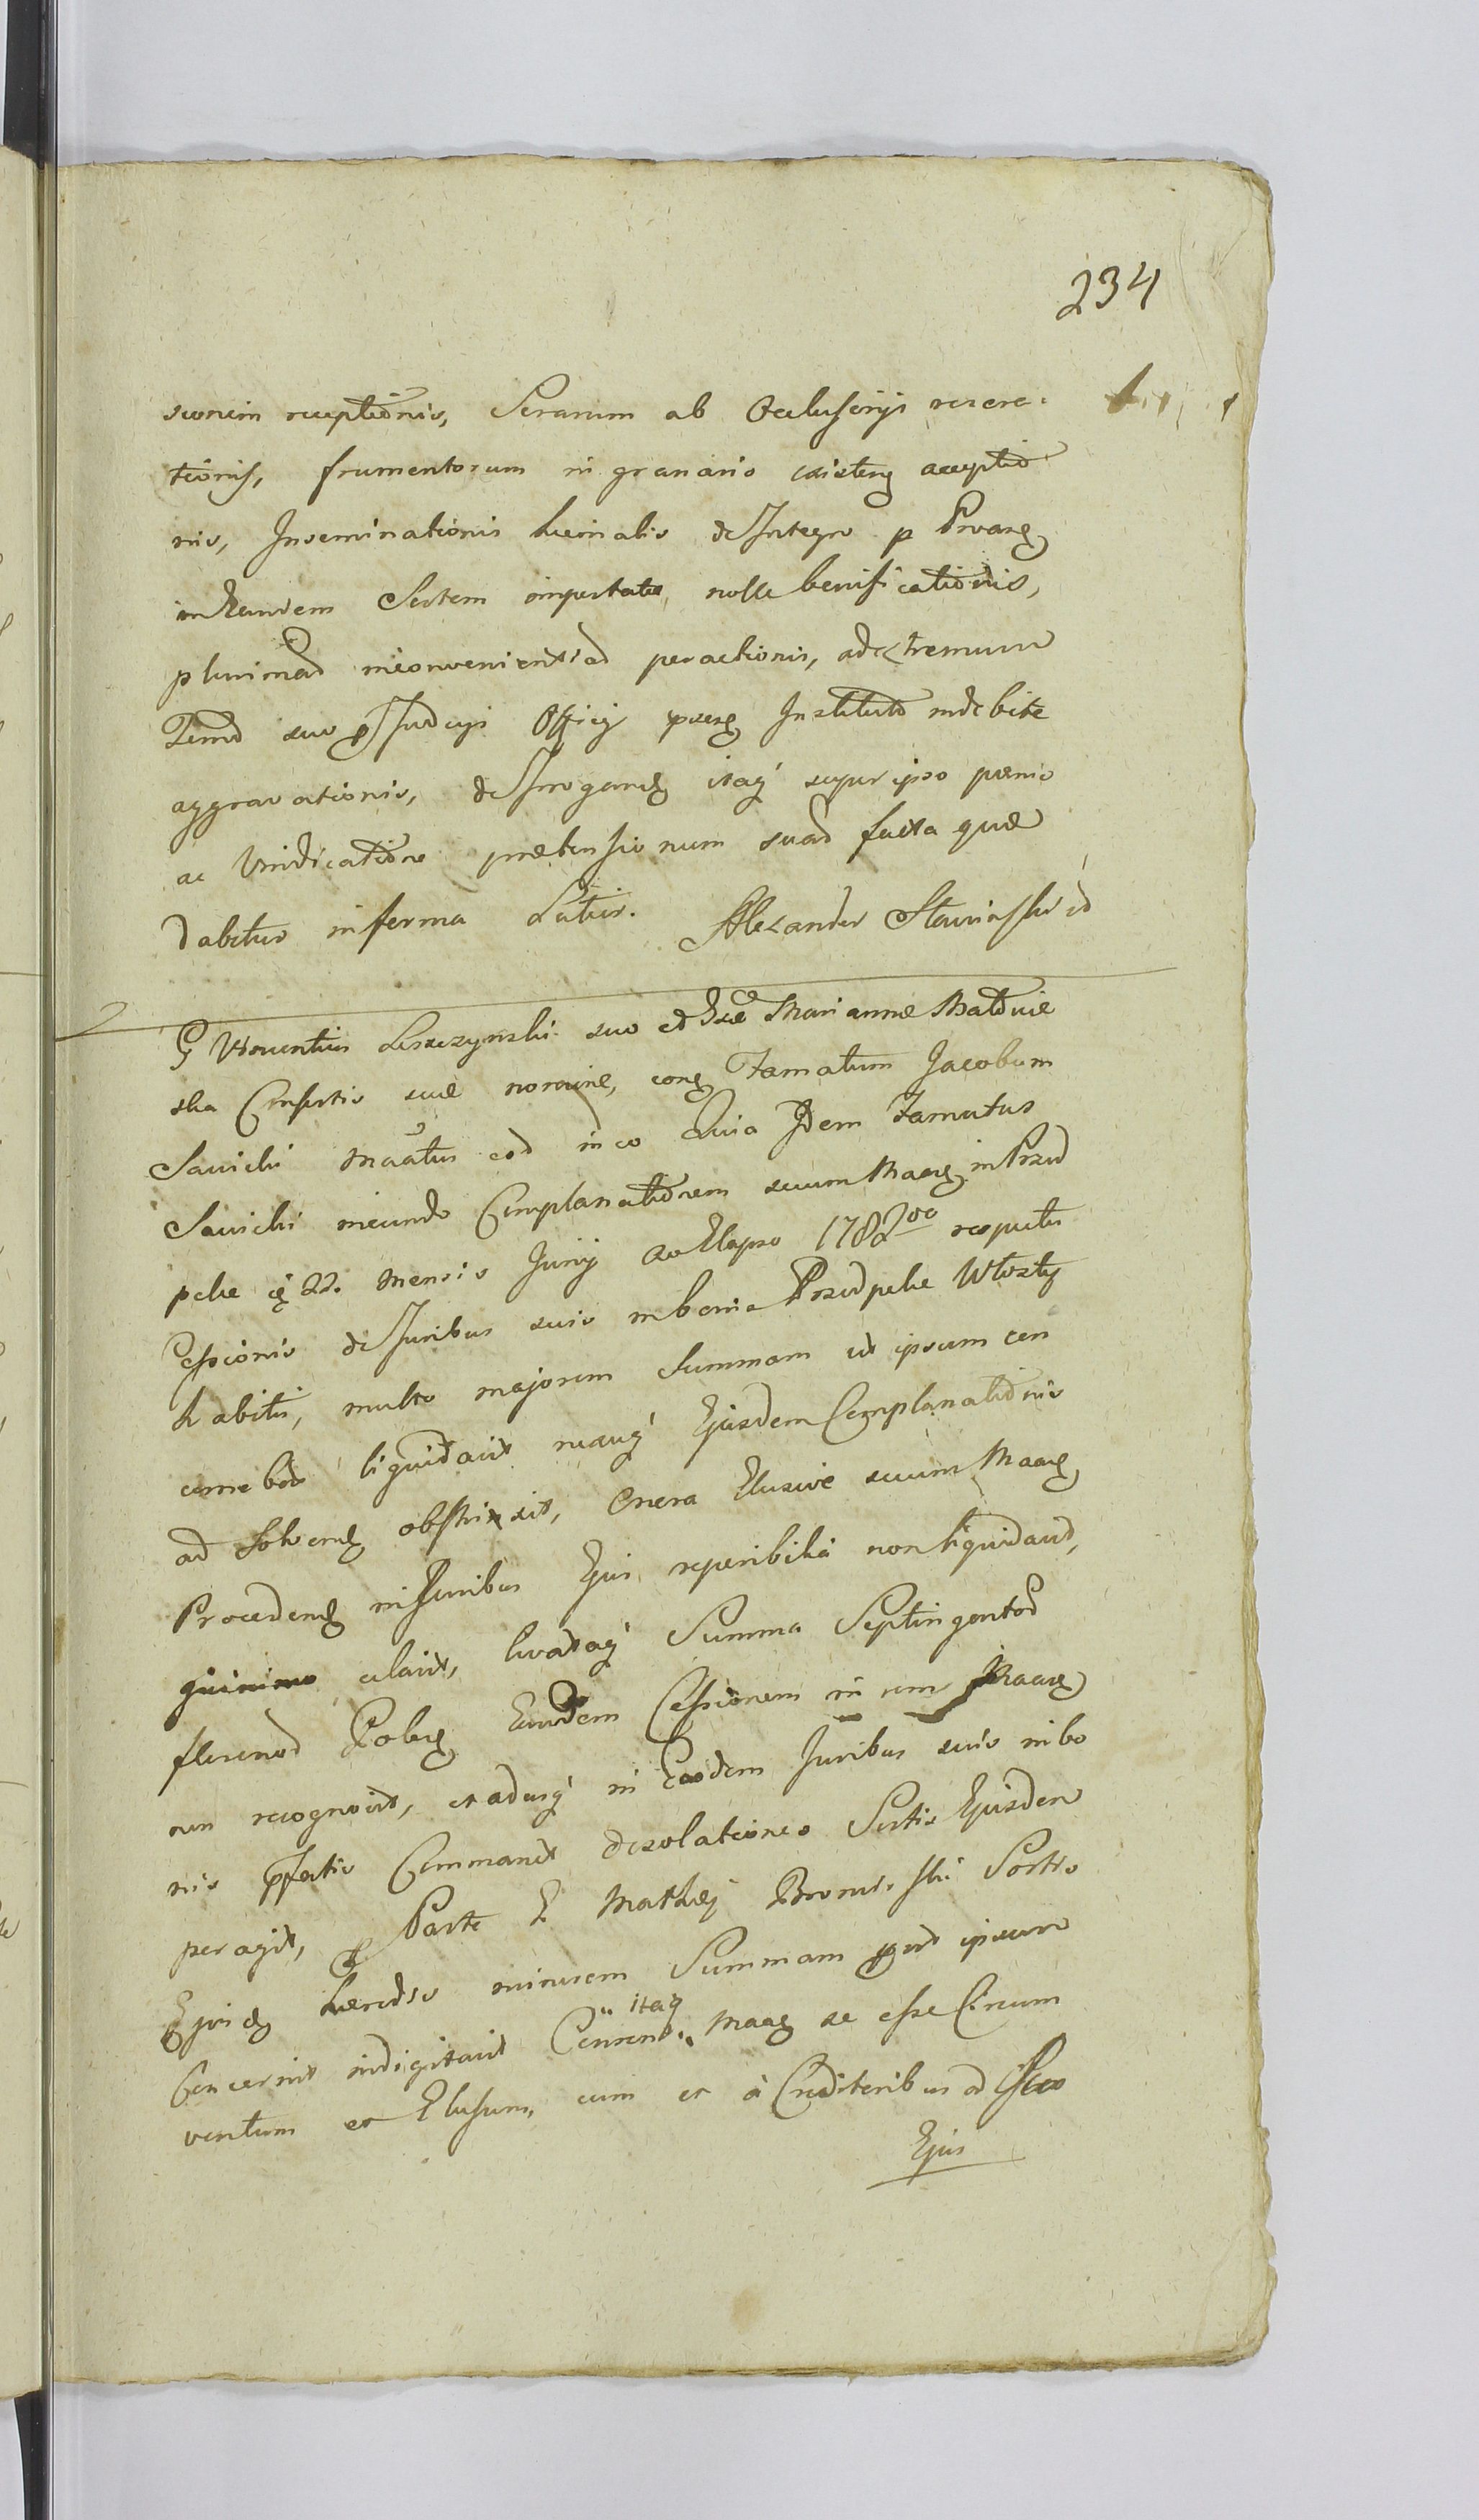 234
sionem receptionis, Serarum ab Oclusorijs recre-
tionis, frumentorum in granario existen acceptio
nis, Inseminationis hiemalis de Integro p Pvang
in Eandem Sortem importatæ, nolle benificationis,
plurimad inconvenientiad peractionis, ad extremum
suo Judicij Officij psens Instituto indebite
aggravationis, de Irrogand itaq super ipso pœnis
ac Vindicatione prætensionum suad facta quæ
dabitur in ferma Latius. Alexander Stawiaski id
G Vincentius Leszczynski suo et Gsæ Mariannæ
ska Consortis suæ nomine, cong Famatum Jacobum
Sawicki Maatus eod in eo Quia Idem Famatus
Sawicki ineundo Complanationem secum Maang in Przed
pełce 22. Mensis Junij Ao Elapso 1782do respectu
Cessionis de Juribus suis in bonis Przedpełce Włosty
habitis, multo majorem Summam ut ipsum con
cernebat liquidavit seseq Ejusdem Complanationis
ad Solvend obstrinxit, Onera Elusive secum Maang
Procedend in Juribus Ejus reperibilia non liquidavit,
quinimo celavit, levataq Summa Septingentod
florenod Polog Eandem Cessionem in rem Maang
non recognovit, et aduсq in Eisdem Juribus suis in bo
nis pfatis Commanet desolationes Sortis Ejusdem
peragit, Parte G Mathæj Sortis
Ejusd hæredis minorem Summam quod ipsum
Concernit indigitavit Censens itaq Maang se esse Circum
ventum et Elusum, cum et à Creditoribus ad
Ejus